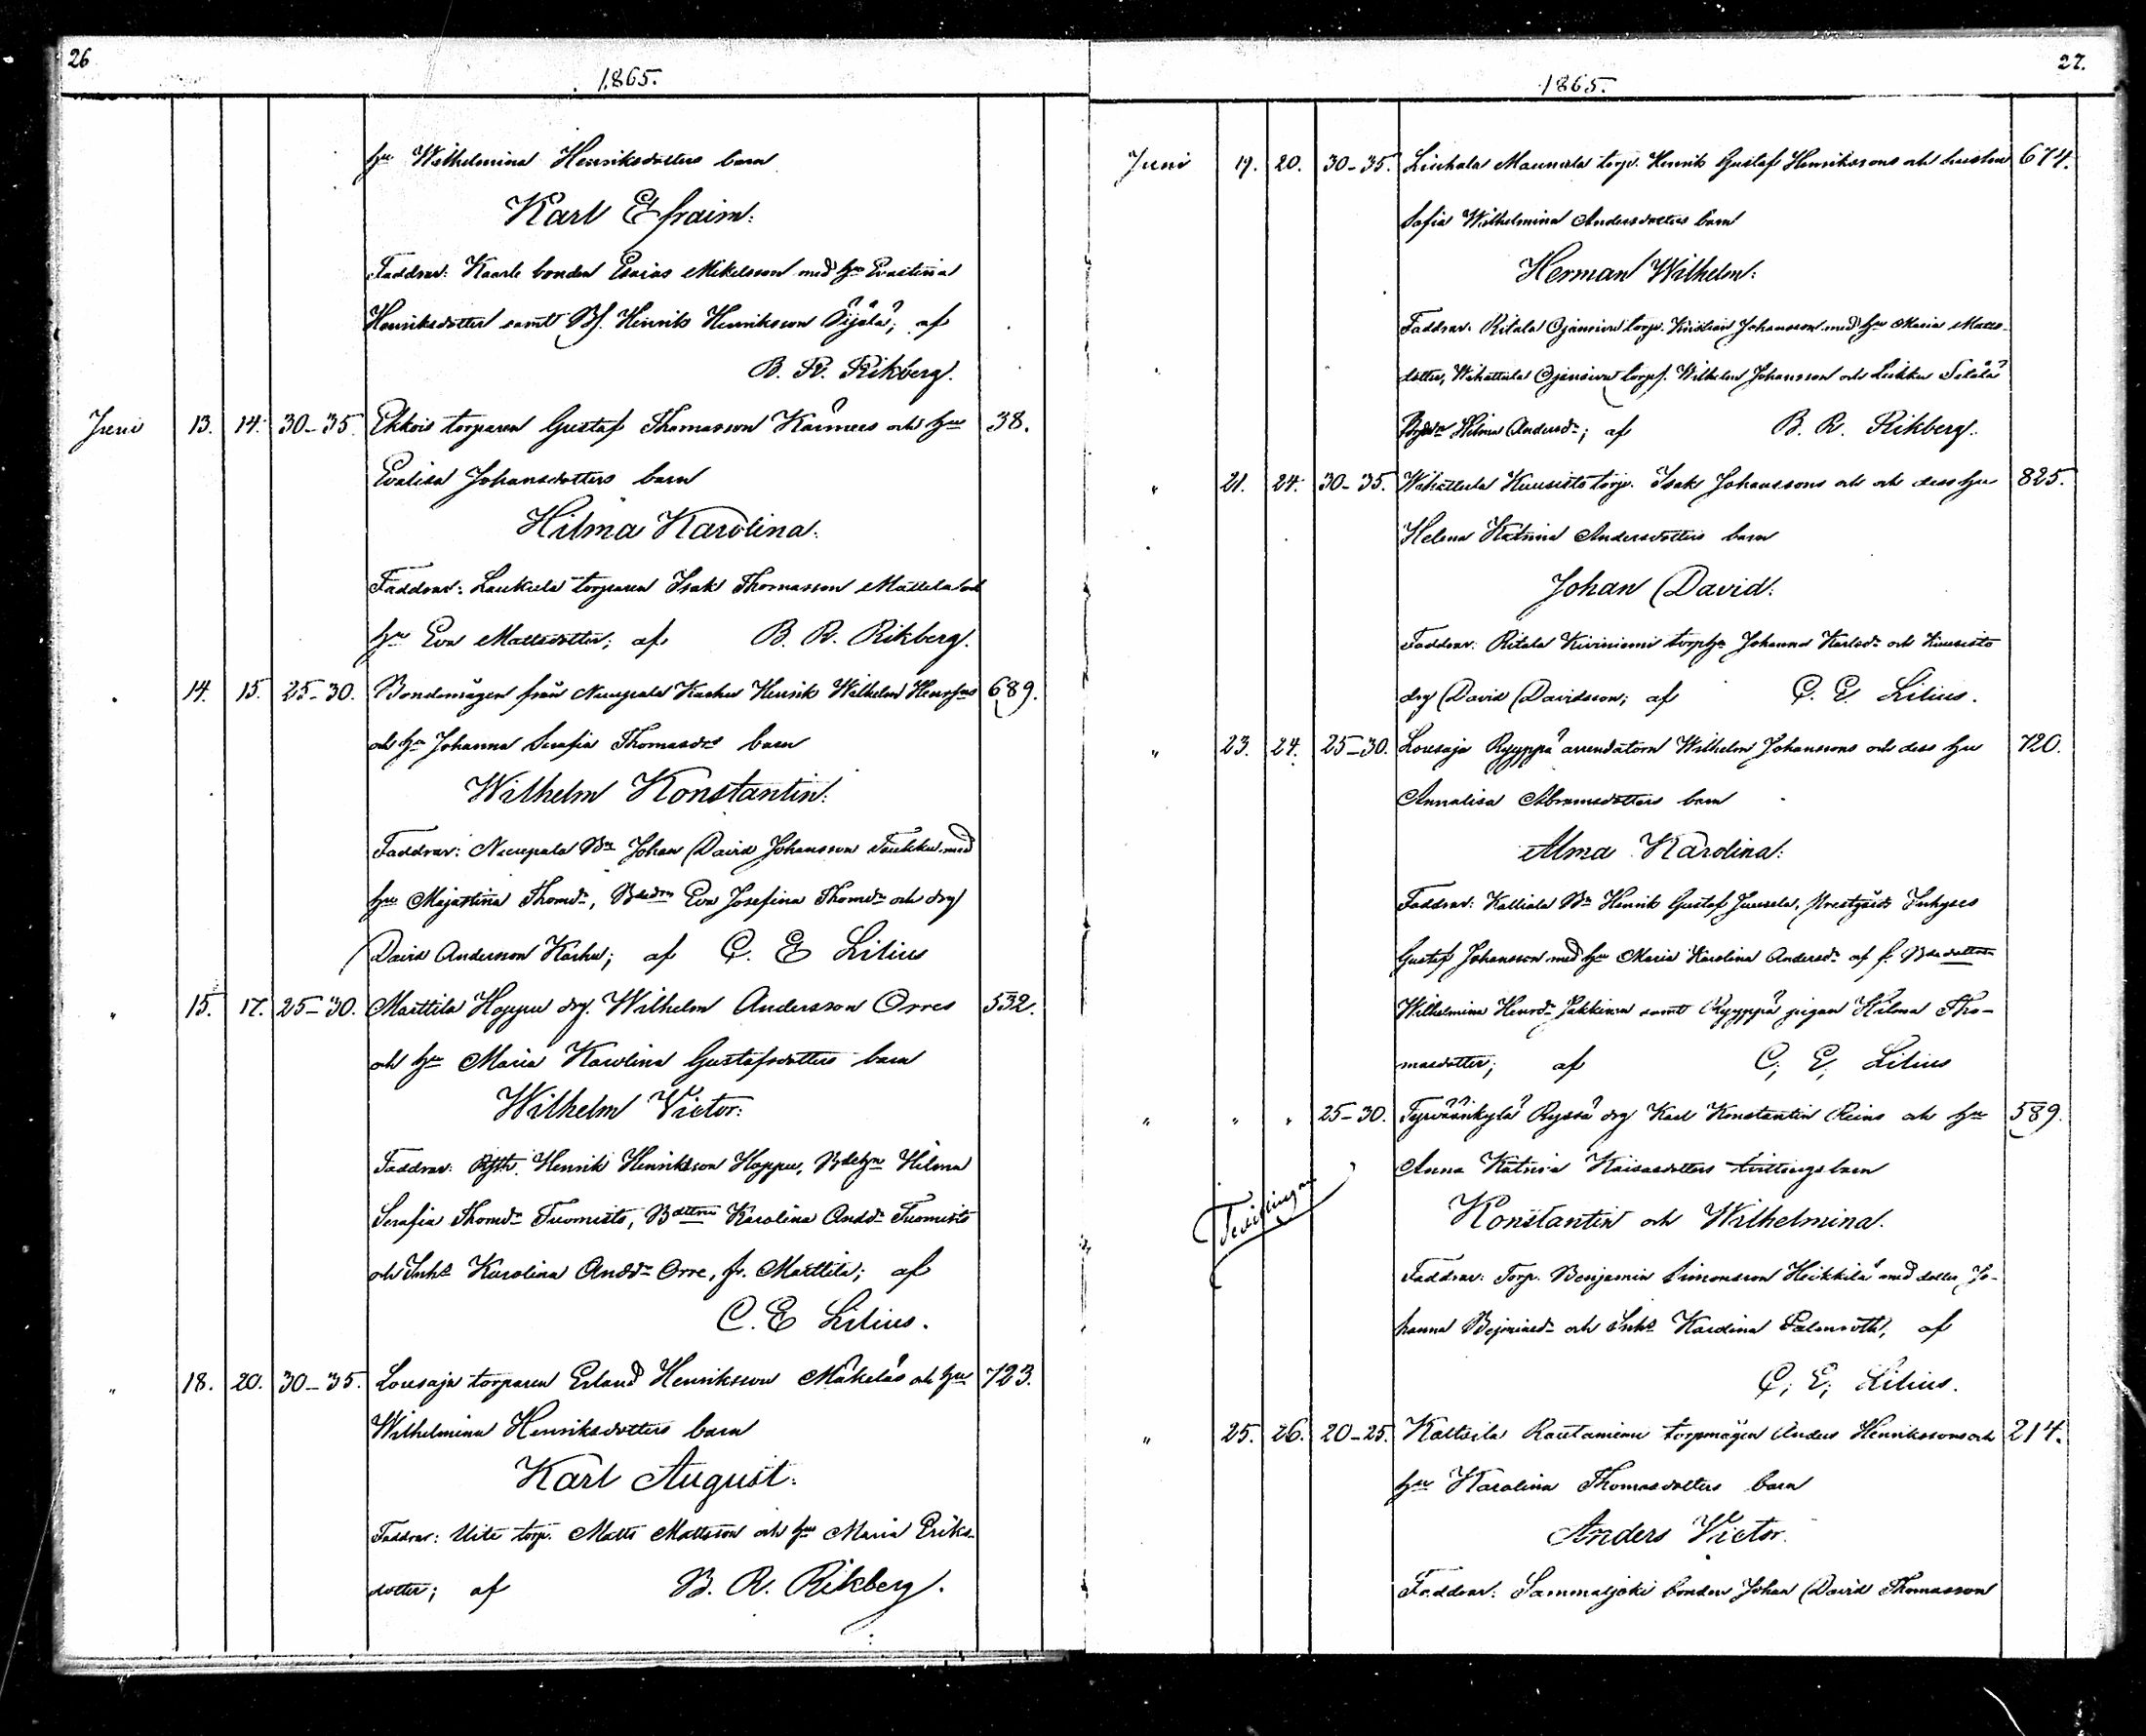 26
1865.
hu Wilhelmina Henriksdotters barn
Karl Efraim:
Faddrar: Kaarle bonden Esaias Mikelsson med hu Evastina
Henriksdotter samt Bf. Henrik Henriksson Äijälä; af
B. R. Rikberg.
Juni 13. 14. 30-35. Ekkois torparen Gustaf Thomasson Kärmees och hus 38.
Evalisa Johansdotters barn
Hilma Karolina.
Faddrar: Laukula torparen Isak Thomasson Mattila och
hu Eva Mattsdotter; af B. R. Rikberg.
14. 15. 25-30. Bondemågen från Nuupala Karhu Henrik Wilhelm Henrss 689.
och hu Johanna Serafia Thomasdrs barn
Wilhelm Konstantin:
Faddrar: Nuupala Bn Johan David Johansson med
hu Majastina Thomdr, Eva Josefina Thomdr och drg
David Andersson Karhu; af C. E. Lilius
" 15. 17. 25-30. Marttila Hoppu drg. Wilhelm Andersson Orres 532.
och hu Maria Karolina Gustafsdotters barn
Wilhelm Victor:
Faddrar: Henrik Henriksson Hoppu, Hilma
Serafia Thomdr Tuomisto, Karolina Anddr Tuomisto
och Inhs Karolina Anddr Orre, fr. Marttila; af
C. E. Lilius.
" 18. 20. 30-35. Lousaja torparen Erland Henriksson Mäkeläs och hus 723.
Wilhelmina Henriksdotters barn
Karl August:
Faddrar: Uite torp. Matts Mattsson och hus Maria Eriks-
dotter; af B. R. Rikberg.
27.
1865.
Juni 19. 20. 30-35. Liuhala Maunula torp. Henrik Gustaf Henrikssons och hustru 674.
Sofia Wilhelmina Andersdotters barn
Herman Wilhelm:
Faddrar: Ritala Ojansivu torp. Kristian Johansson med hu Maria Matts-
dotter, Wihattula Ojansivu torpf. Wilhelm Johansson och
Hilma Andersdr; af B. R. Rikberg.
" 21. 24. 30-35. Wihattula Kuusisto torp. Isak Johanssons och och dess hu 825.
Helena Katrina Andersdotters barn
Johan David:
Faddrar: Ritala Kiviniemi torphu Johanna Karlsdr och Kuusisto
drg David Davidsson; af C. E. Lilius.
" 23. 24. 25-30. Lousaja Ryyppä arrendatorn Wilhelm Johanssons och dess hu 720.
Annalisa Abramsdotters barn
Alma Karolina:
Faddrar: Kalliala Bn Henrik Gustaf Juusela, Prestgårds Inhyses
Gustaf Johansson med hu Maria Karolina Andersdr af f.
Wilhelmina Henrdr samt Ryyppä pigan Hilma Tho-
masdotter; af C. E. Lilius
" " " 25-30. Tyrväänkylä Ryssä drg Karl Konstantin Reins och hu 589.
Anna Katrina Kaisasdotters tvillingsbarn
Tvillingar
Konstantin och Wilhelmina.
Faddrar: Torp. Benjamin Simonsson Heikkilä med dotter Jo-
hanna och Inhs Karolina Palmroth, af
C. E. Lilius.
" 25. 26. 20-25. Kaltsila Rautaniemi torpmågen Anders Henrikssons och 214.
hu Karolina Thomasdotters barn
Anders Victor.
Faddrar: Sammaljoki bonden Johan David Thomasson